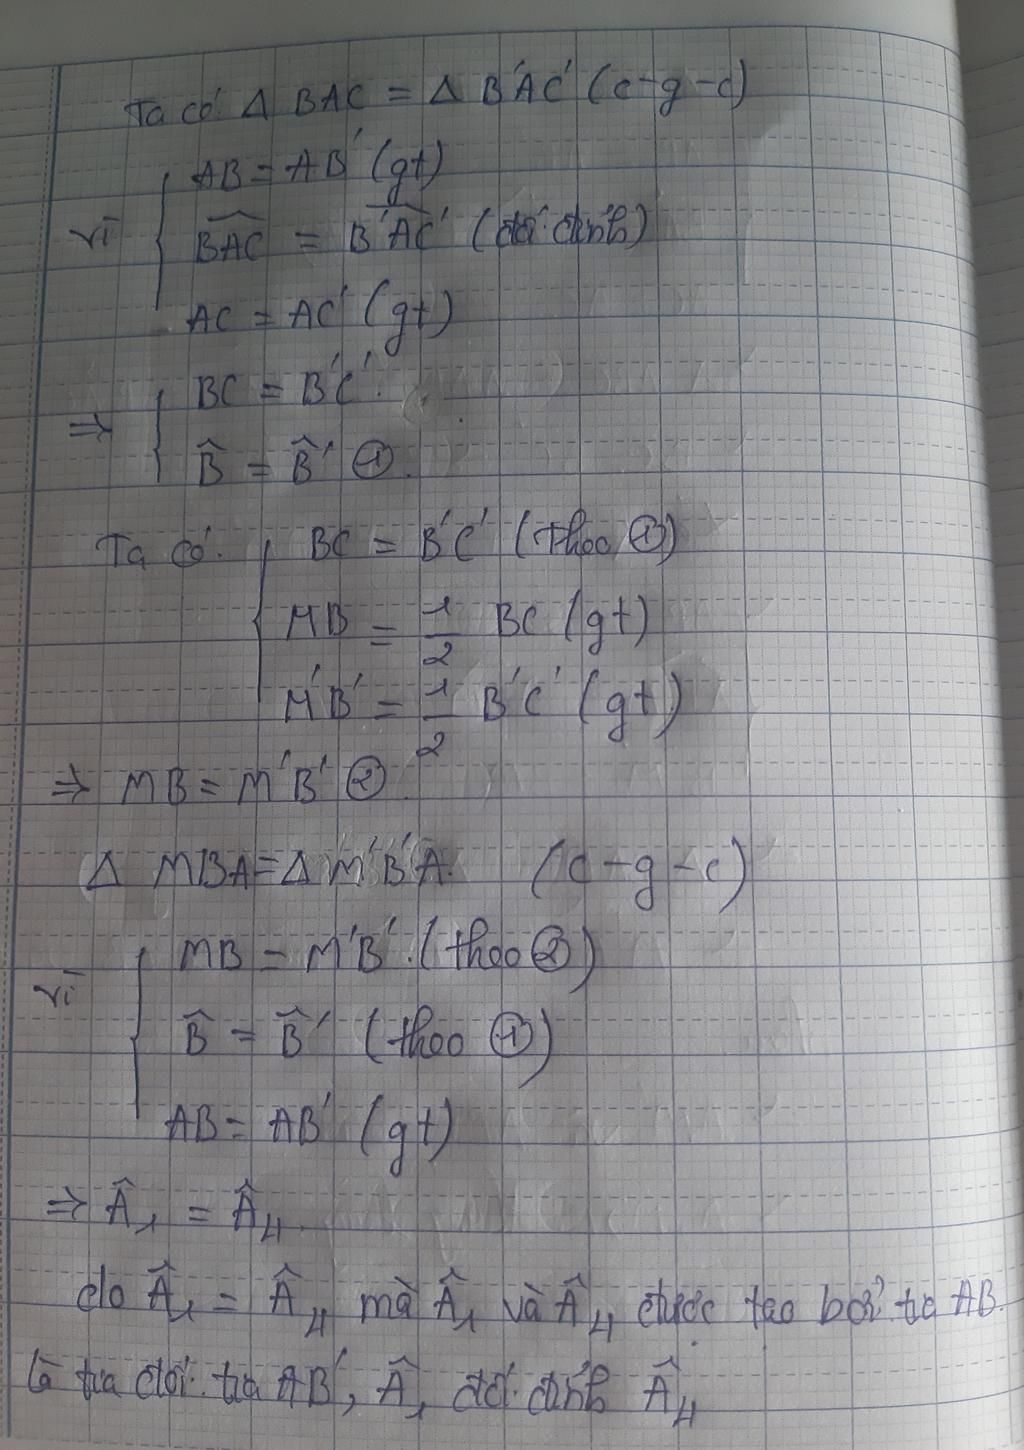 Ta có Δ BAC = Δ B'AC' (c-g-c)
AB = AB' (gt)
vì BAC = B'AC' (đối đỉnh)
AC = AC' (gt)
BC = B'C'
⇒ B̂ = B̂' ①.
Ta có BC = B'C' (theo ①)
MB = 1/2 BC (gt)
M'B' = 1/2 B'C' (gt)
⇒ MB = M'B' ②.
Δ MBA = Δ M'B'A. (c-g-c)
MB = M'B' (theo ②)
vì B̂ = B̂' (theo ①)
AB = AB' (gt)
⇒ Â₁ = Â₄.
do Â₁ = Â₄ mà Â₁ và Â₄ được tạo bởi tia AB.
là tia đối tia AB', Â₁ đối đỉnh Â₄